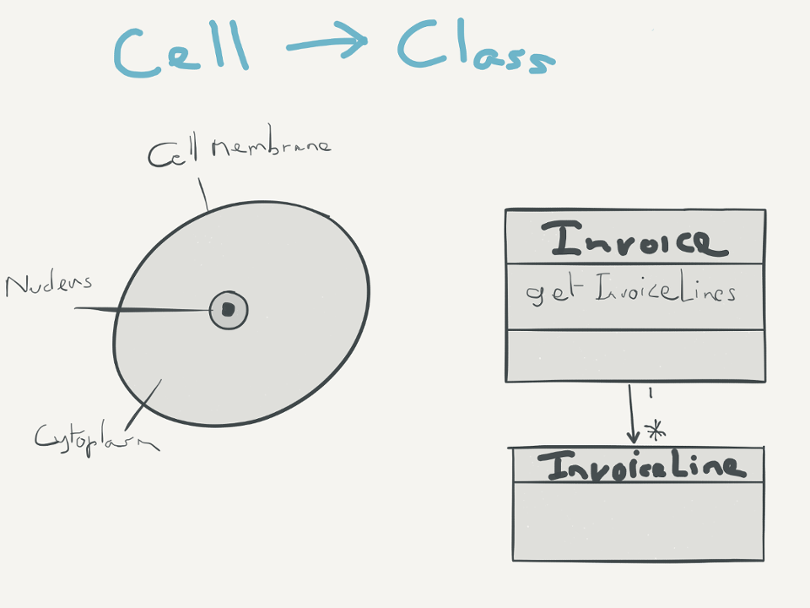 Cell → Class
Cell membrane
Nucleus
Cytoplasm
Invoice
get InvoiceLines
1
*
InvoiceLine